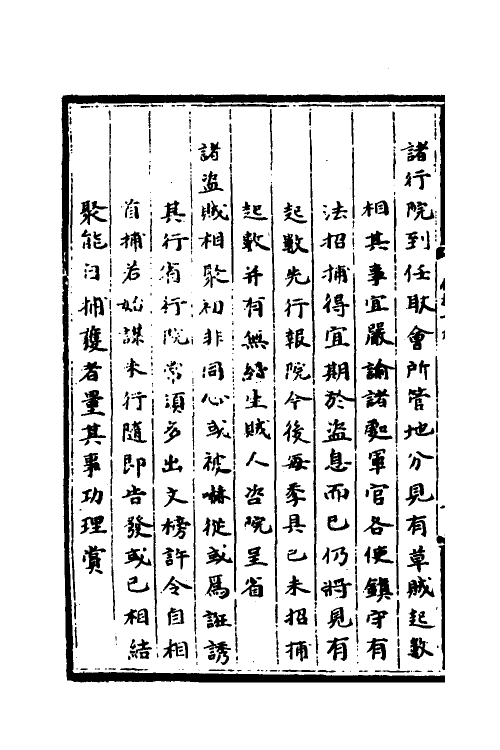 諸行院到任取會所管地分見有草賊起數
相其事宜嚴諭諸處軍官各使鎮守有
法招捕得宜期於盜息而已仍將見有
起數先行報院今後每季具已未招捕
起數并有無續生賊人咨院呈省
諸盜賊相聚初非同心或被嚇從或爲誑誘
其行省行院常須多出文榜許令自相
首捕若始謀未行隨即告發或已相結
聚能自捕獲者量其事功理賞